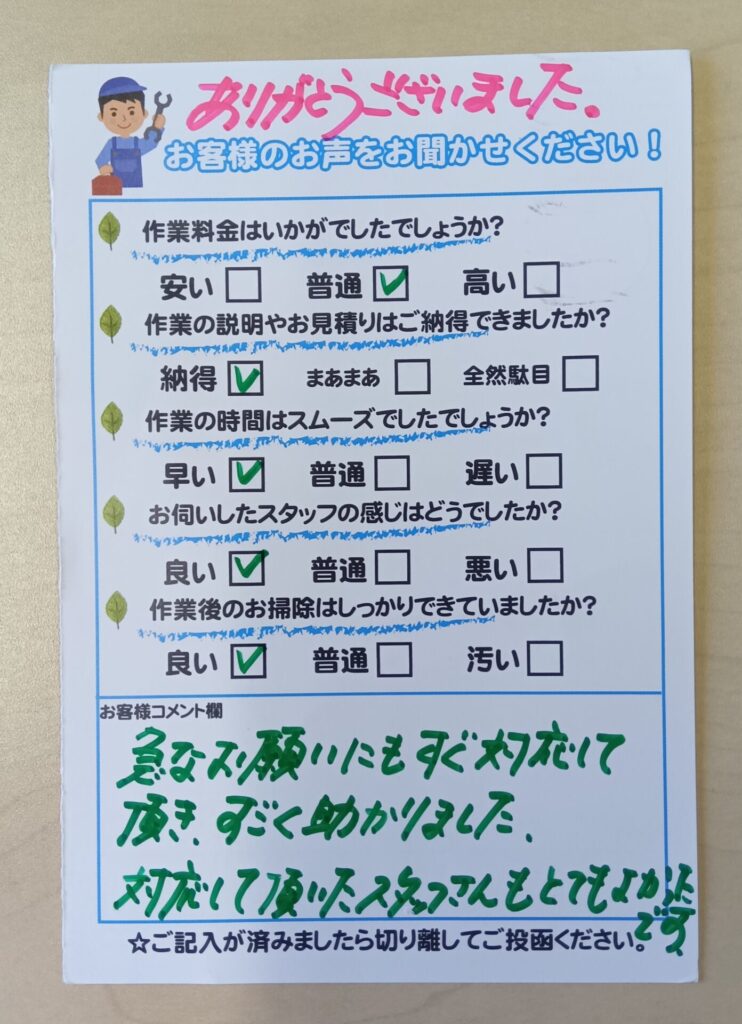 ありがとうございました。
お客様のお声をお聞かせください！
作業料金はいかがでしたでしょうか？
安い 普通 高い
作業の説明やお見積りはご納得できましたか？
納得 まあまあ 全然駄目
作業の時間はスムーズでしたでしょうか？
早い 普通 遅い
お伺いしたスタッフの感じはどうでしたか？
良い 普通 悪い
作業後のお掃除はしっかりできていましたか？
良い 普通 汚い
お客様コメント欄
急なお願いにもすぐ対応して
頂き、すごく助かりました、
対応して頂いたスタッフさんもとてもよかった
です
☆ご記入が済みましたら切り離してご投函ください。